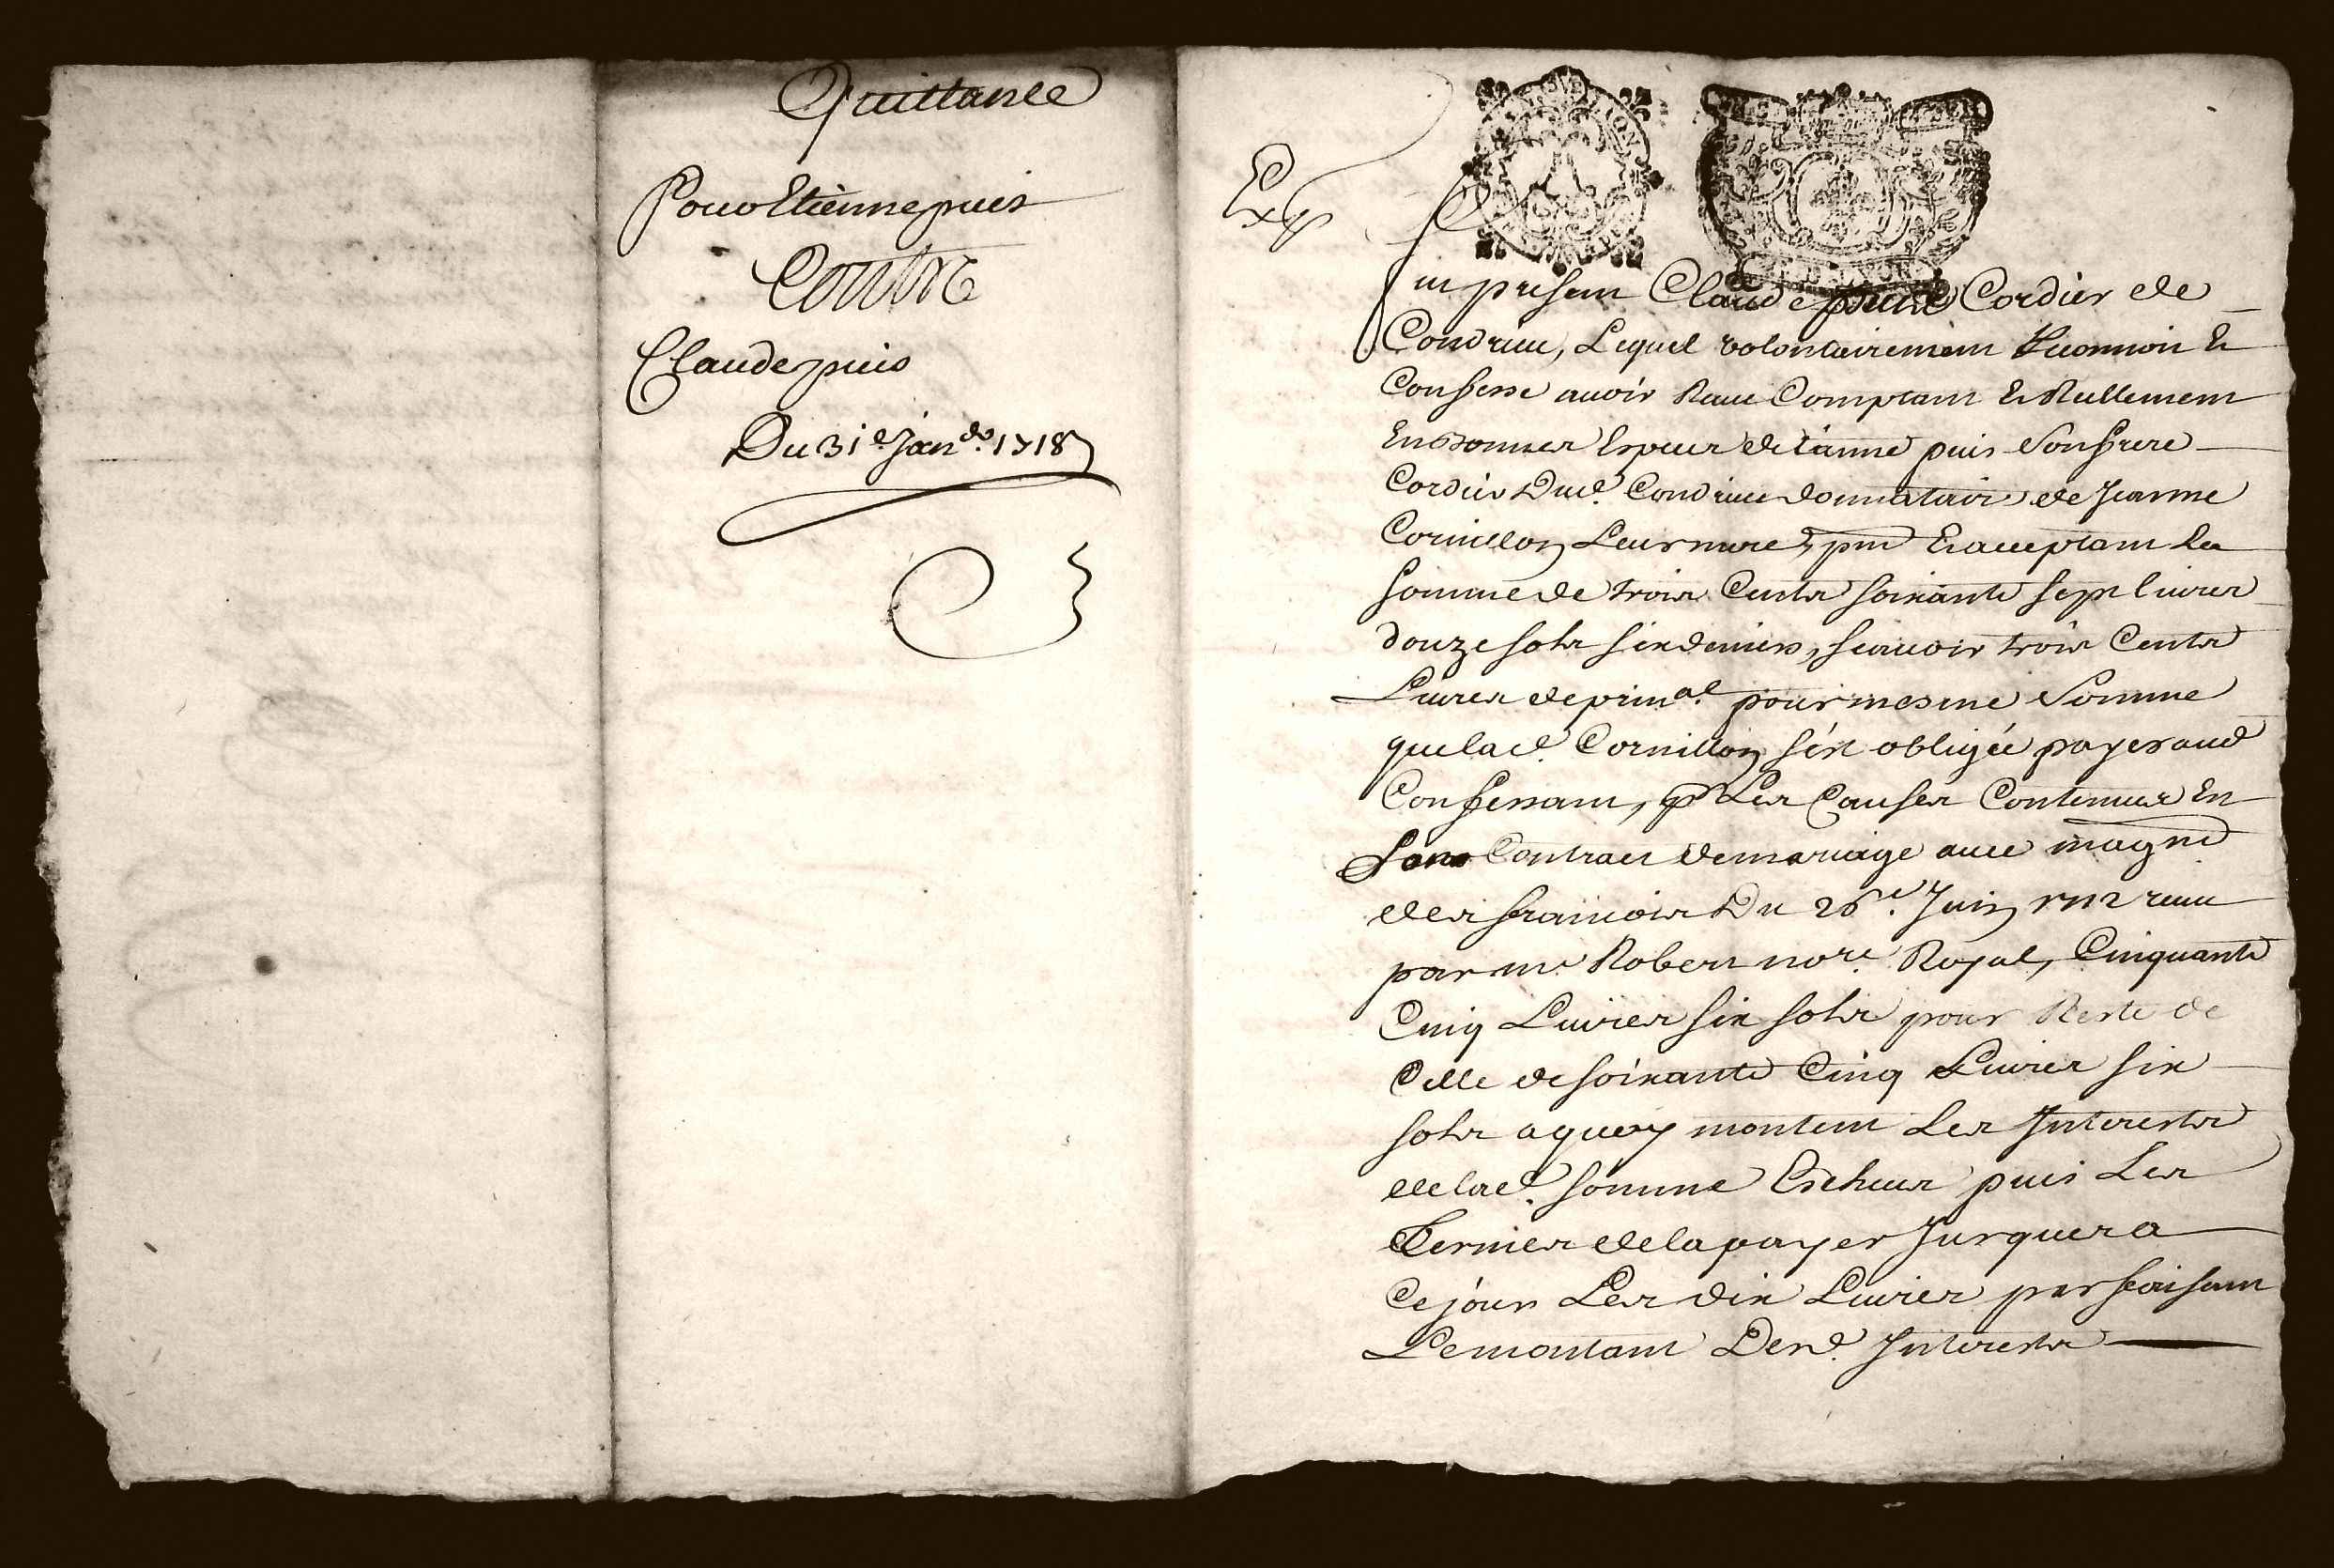 Quittance
Pour Etienne puis
Contre
Claude puis
Du 31e Janer 1718
Exp
fu presen Claude puis Cordier de
Condrieu, Lequel volontairemen Reconnoi Et
Confesse auoir Receu Comptam Et Reellemem
En bonnes Especes de Etienne puis Son frere
Cordier Dud. Condrieu donnataire de Jeanne
Cornillon Leur mere, pnt Et acceptam La
Somme de trois Cents Soixante Sept Liures
douze Sols Six deniers, Scauoir trois Cents
Liures de prinal. pour mesme Somme
que lad. Cornillon s'est obligée payer aud
Confessam, pr Les Causes Contenues En
Son Contract de mariage auec magne
des francois Du 26e. Juin 1712 receu
par me Robert nore. Royal, Cinquante
Cinq Liures Six Sols pour Reste de
Celle de Soixante Cinq Liures Six
Sols a quoy montem Les Interests
de lad. Somme Escheus puis Les
Termes de la payer Jusques a
Ce jour Les dix Liures parfaisam
Le montant Desd. Interests